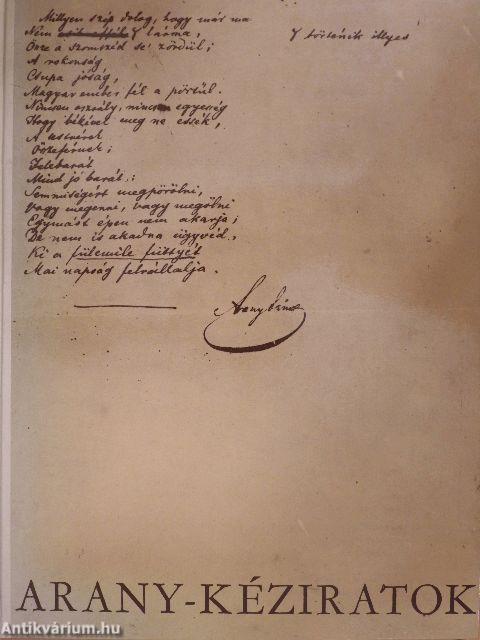 Millyen szép dolog, hogy már ma
Nem ɣ lárma, ɣ történik illyes
Össze a szomszéd se' zördül;
A rokonság
Csupa jóság,
Magyar ember fél a pörtül.
Nincsen osztály, nincsen egyesség
Hogy békével meg ne essék,
A testvérek
Összeférnek;
Felebarát
Mind jó barát:
Semmiségért megpörölni,
Vagy megenni, vagy megölni
Egymást épen nem akarja;
De nem is akadna ügyvéd,
Ki a fülemile füttyét
Mai napság felvállalja.
Arany János
ARANY-KÉZIRATOK
Antikvárium.hu